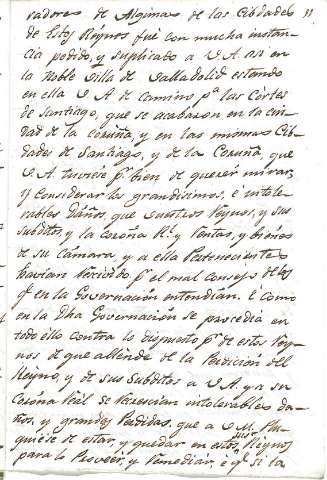 radores de Algunas de las Cibdades 11
de Estos Reynos fué con mucha instan-
cia pedido, y suplicado a V. A. asi en
la Noble Villa de Valladolid estando
en ella V. A. de camino pª las Córtes
de Santiago, que se acabáron en la ciu-
dad de la Coruña, y en las mismas Cib-
dades de Santiago, y de la Coruña, que
V. A. tuviese pr. bien de querér mirar,
y considerar los grandisimos, é intole-
rables Daños, que vuestros Reynos, y sus
subditos, y la corona Rl. y Rentas, y bienes
de su Cámara, y a ella Pertenecientes
havian Recivido pr. el mal consejo de los
q. en la Governación entendian. É como
en la Dha Governación se procedia en
todo ello contra lo dispuesto pr. de estos Rey-
nos de que allénde de la Perdición del
Reyno, y de sus Subditos a V. A. y a su
Corona Real se Recrecian intolerables da-
ños, y grandes Perdidas, que a V. M. Plu-
guiése de estar, y quedar en estos sus Reynos
para lo Proveér, y Remediár, é q. si la